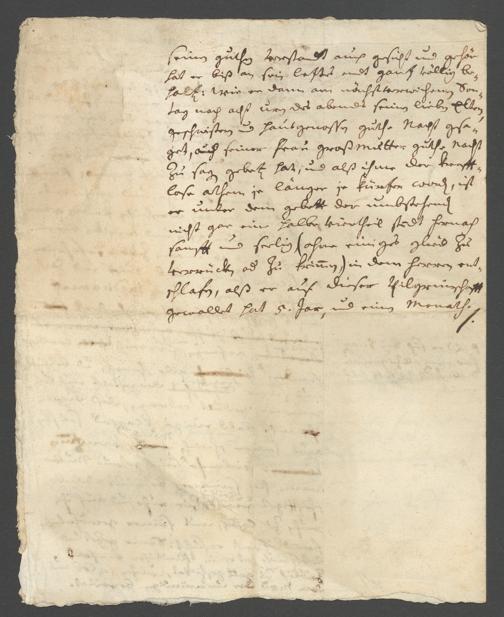 seinen guthen verstandt auch gesicht und gehör
hat er biß an sein letstes endt gantz völlig be-
halten: wie er dann am nächstverwichnen Son-
tag nach acht uren des abends seinen lieben Elteren,
geschwisten und haußgenossen guthe Nacht gesa-
get, auch seiner frau großmutter guthe Nacht
zu sagen gebetten hat, und alß ihme der krefft-
lose athem je länger je kürtzer worden, ist
er under dem gebett der umbstehenden
nicht gar ein halbe viertheil stedt hernach
sanfft und seelig (ohne einiges glied zu
verrücken od zu krümmen) in dem herren ent-
schlafen, alß er auf dieser Pilgrimschafft
gewallet hat 5. Jar, und ein Monath.